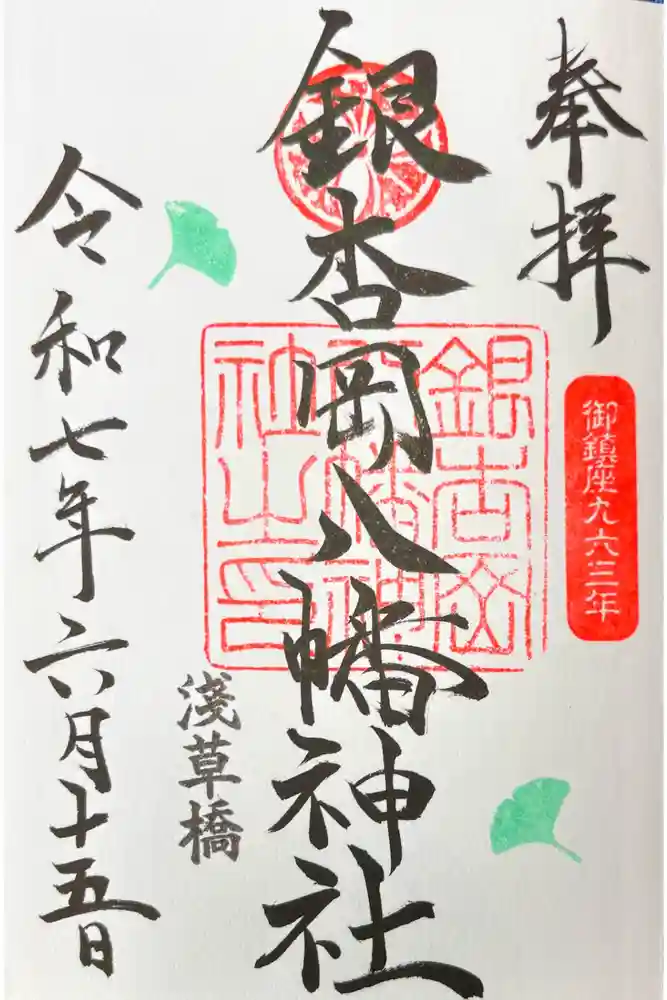 奉拝
御鎮座九六三年
銀杏岡八幡神社
銀杏岡八幡神社之印
淺草橋
令和七年六月十五日